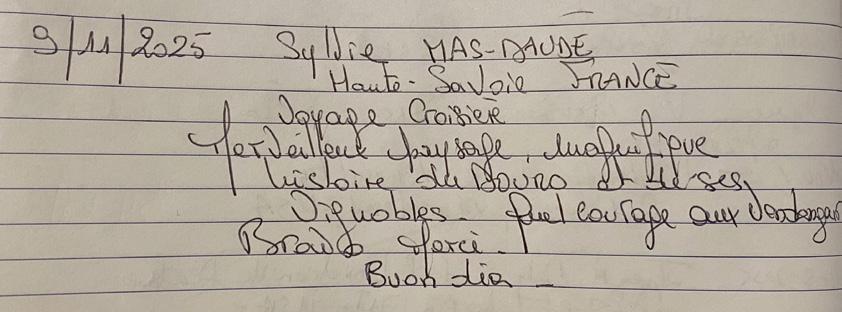 9/11/2025 Sylvie MAS-DAUDÉ
Haute-Savoie FRANCE
Voyage Croisière
Merveilleux paysage, magnifique
histoire du Douro et de ses
Vignobles - Quel courage aux Vendanges
Bravo Merci -
Buon dia -